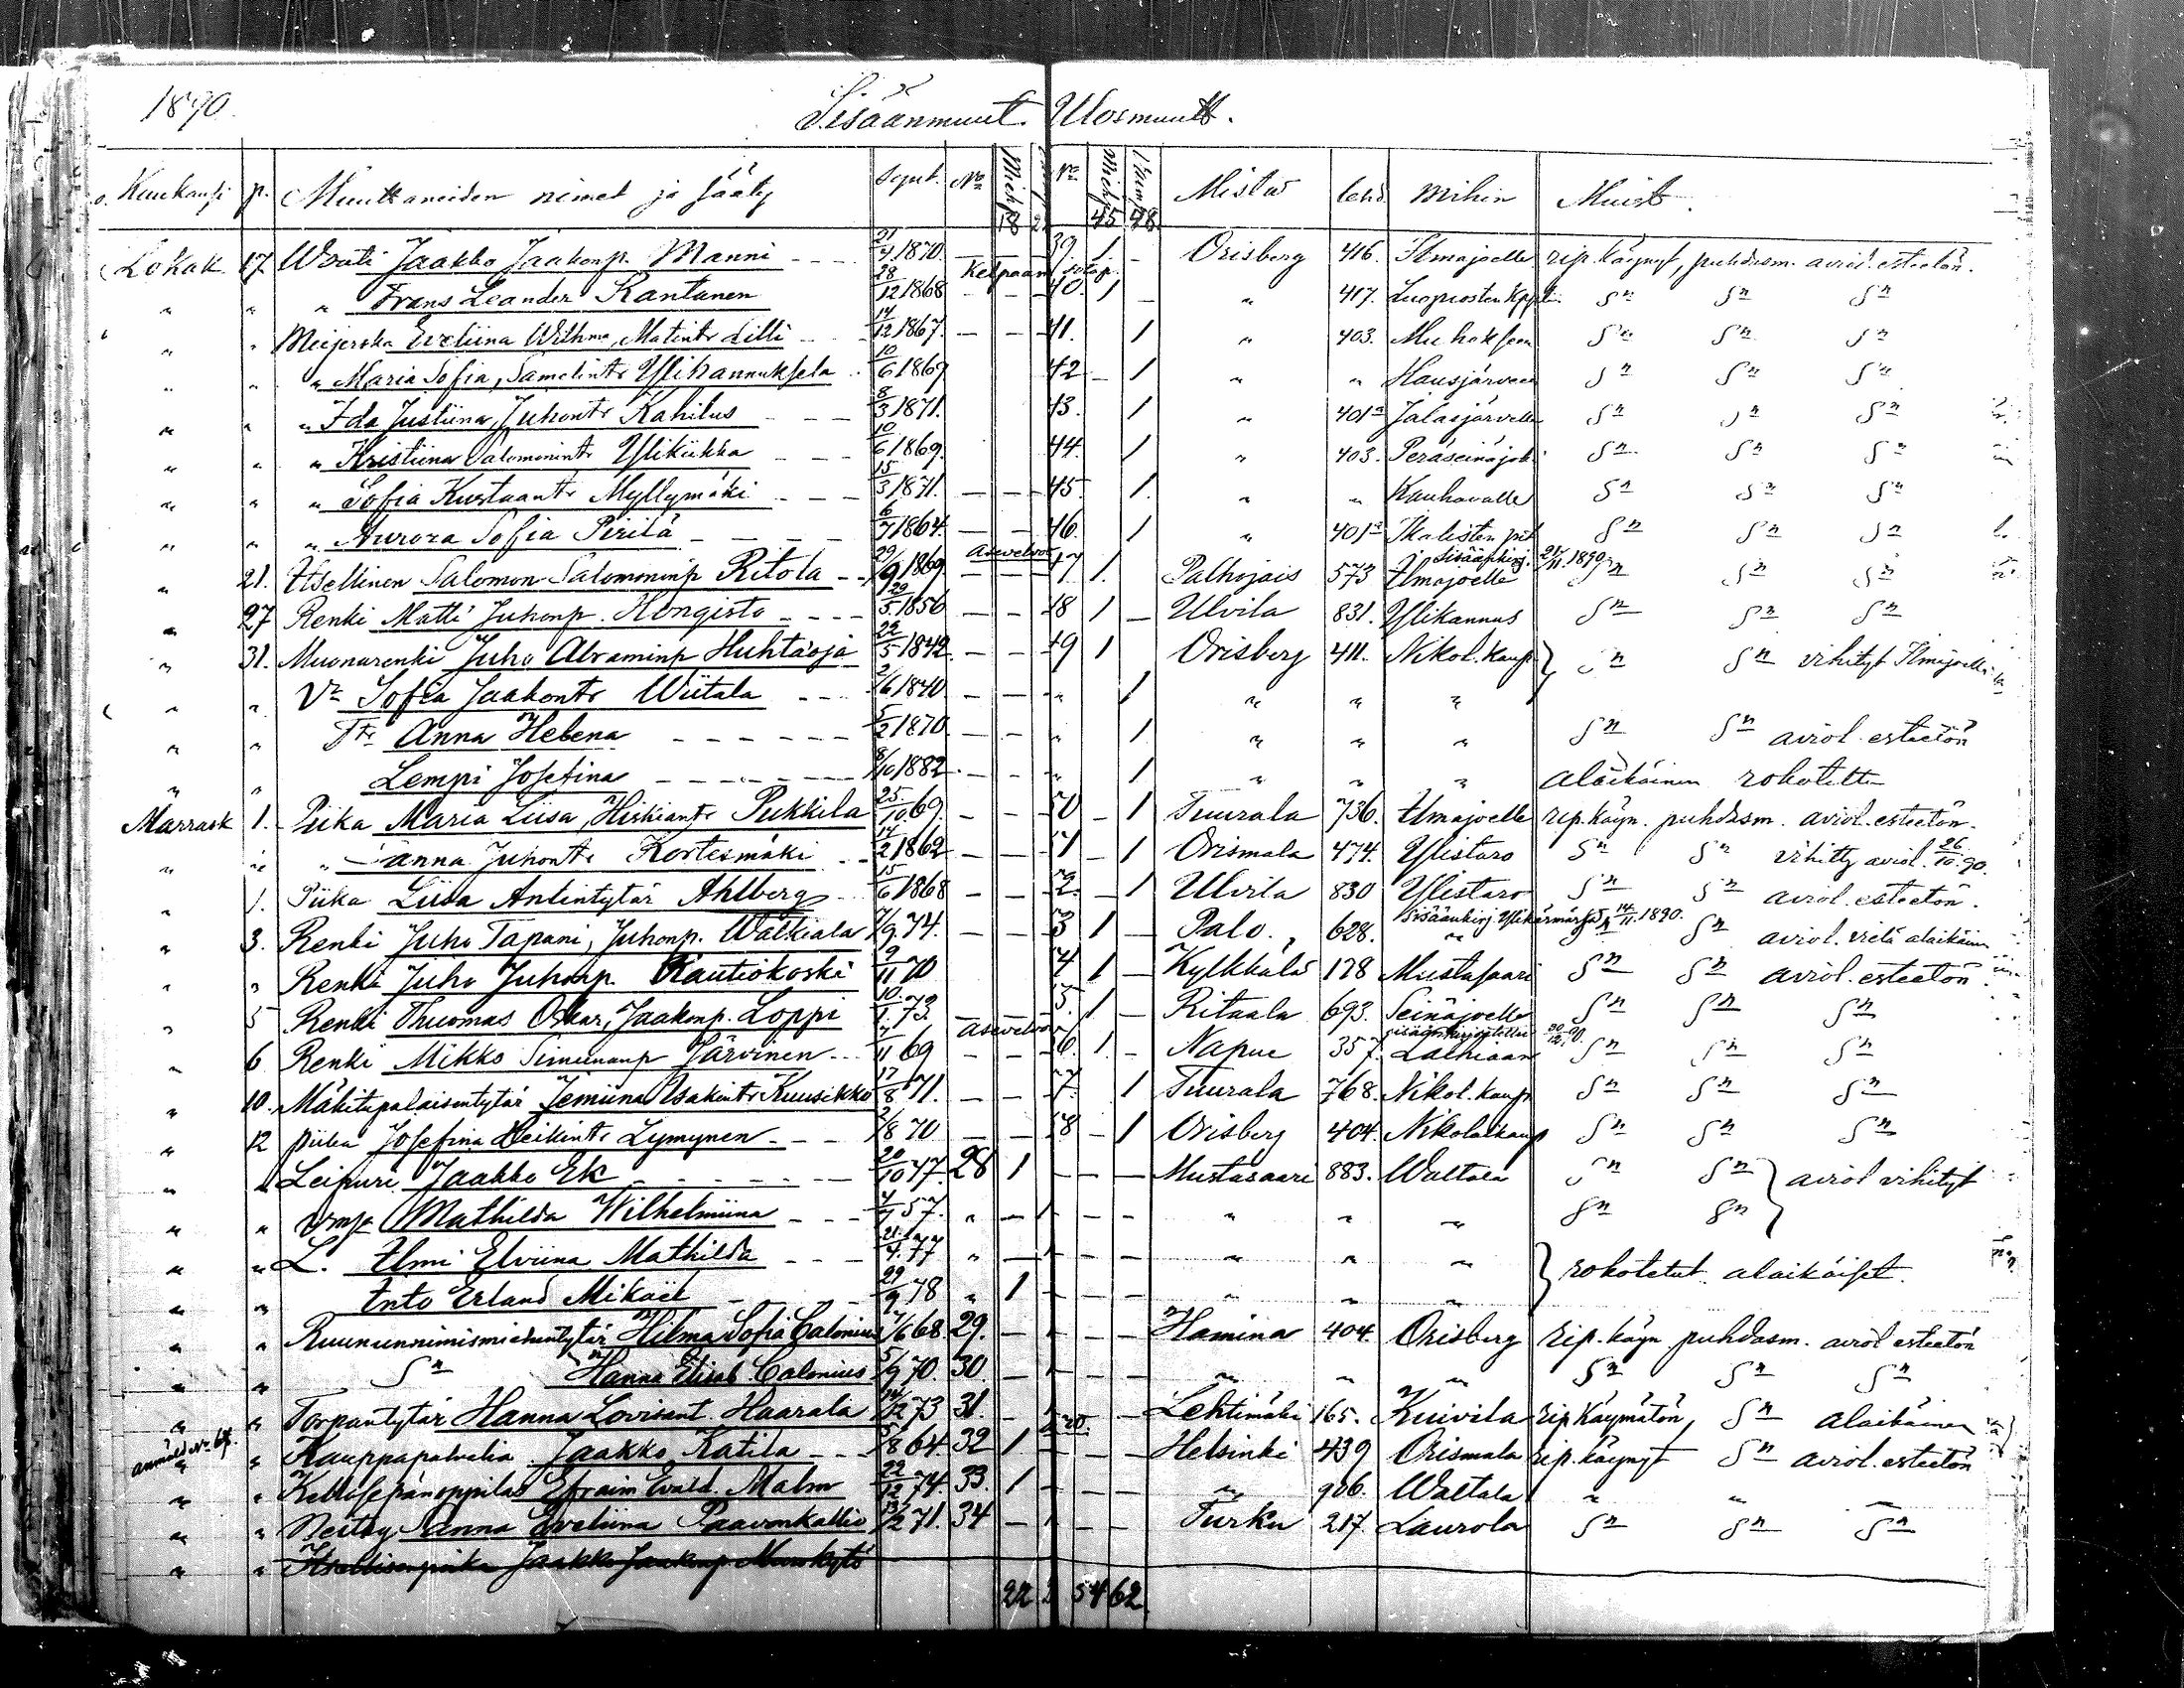 1890.
Sisäänmuut. Ulosmuutt.
Kuukausi p. Muuttaneiden nimet ja sääty Synt. No No Mistä lehd. Mihin Muist.
18 45 48
Lokak. 17 Wouti Jaakko Jaakonp. Manni 21/4 1870. 39 1 Orisberg 416. Ilmajoelle rip. käynyt, puhdasm. aviol. esteetön.
Kelpaam. sotap.
" " " Frans Leander Kantanen 28/12 1868 40. 1 " 417. Sn Sn Sn
" " Meijerska Eveliina Wilhma, Matintr Lilli 14/12 1867. 41. 1 " 403. Sn Sn Sn
" " " Maria Sofia, Samelintr Ylihannuksela 10/6 1869 42 1 " " Hausjärveen Sn Sn Sn
" " " Ida Justiina, Juhontr Kahilus 8/3 1871. 43. 1 " 401a Jalasjärvelle Sn Sn Sn
" " " Kristiina Salomonintr Ylikiikka 10/6 1869. 44. 1 " 403. Peräseinäjoki Sn Sn Sn
" " " Sofia Kustaantr Myllymäki 15/3 1871. 45. 1 " " Kauhavalle Sn Sn Sn
" " " Aurora Sofia Pirilä 6/7 1864. 46. 1 " 401a Ikalisten pit Sn Sn Sn
Asevelvol sisäänkirj. 21/11 1890
" 21. Itsellinen Salomon Salomoninp Ritola 29/9 1869. 47. 1. Palhojais 573 Ilmajoelle Sn Sn Sn
" 27 Renki Matti Juhonp. Hongisto 29/5 1856 48 1 Ulvila 831. Ylikannus Sn Sn Sn
" 31. Muonarenki Juho Abraminp Huhtaoja 22/5 1842. 49 1 Orisberg 411. Nikol. kaup Sn Sn vihityt Ilmajoella
" " Vo Sofia Jaakontr Wiitala 2/6 1840 " 1 " " "
" " Ttr Anna Helena 5/2 1870 " 1 " " " Sn Sn aviol. esteetön
" " Lempi Josefina 8/10 1882. " 1 " " " alaikäinen rokotettu
Marrask 1. Piika Maria Liisa, Hiskiantr Pukkila 25/10 69. 50 1 Tuurala 736. Ilmajoelle rip. käyn. puhdasm. aviol. esteetön.
" " " Sanna Juhontr Kortesmäki 14/2 1862 1 1 Orismala 474. Ylistaro Sn Sn vihitty aviol. 26/10 90.
" 1. Piika Liisa Antintytär Ahlberg 15/6 1868 2. 1 Ulvila 830 Ylistaro Sn Sn aviol. esteetön.
sisäänkirj. Ylihärmässä 14/11 1890.
" 3. Renki Juho Tapani, Juhonp. Walkiala 7/9 74. 3 1 Palo. 628. " Sn aviol. vielä alaikäin
" " Renki Juho Juhonp. Rautiokoski 9/11 70 4 1 Kylkkälä 128 Mustasaari Sn Sn aviol. esteetön
" 5 Renki Thuomas Oskar, Jaakonp. Loppi 10/1. 73 5. 1 Ritaala 693. Seinäjoelle Sn Sn Sn
Asevelvol
" 6 Renki Mikko Simunanp Järvinen 7/11 69 6. 1. Napue 357. Laihiaan 30/12 90. Sn Sn Sn
" 10. Mäkitupalaisentytär Jemiina Isakintr Kuusikko 17/8 71. 7. 1 Tuurala 768. Nikol. kaup Sn Sn Sn
" 12 piika Josefina Heikintr Lymynen 2/8 70 8 1 Orisberg 404. Nikolaikaup Sn Sn Sn
" " Leipuri Jaakko Ek 20/10 47. 28 1 Mustasaari 883. Waltala Sn Sn aviol vihityt
" " vmo Mathilda Wilhelmiina 57. " 1 " " " Sn Sn
" " L. Ilmi Elviina Mathilda 21/4. 77 " 1 " " " rokotetut alaikäiset.
" " Into Erland Mikael 29/9 78 " 1 " " "
" " Ruununnimismiehentytär Hilma Sofia Calonius 7/6 68 29. 1 Hamina 404. Orisberg rip. käyn puhdasm. aviol esteetön
" " Sn Hanna Elisab Calonius 5/9 70 30. 1 " " " Sn Sn Sn
" " Torpantytär Hanna Lovisant. Haarala 24/12 73 31. 1 Lehtimäki 165. Kuivila rip. käymätön, Sn alaikäinen
" " Kauppapalvelia Jaakko Katila 5/8 64. 32 1 Helsinki 439 Orismala rip. käynyt Sn aviol. esteetön
" " Kellosepänoppilas Efraim Evald. Malm 22/12 74. 33. 1 " 906. Waltala " " "
" " Neitsy Sanna Eveliina Paavonkallio 13/2 71. 34 1 Turku 217. Laurola Sn Sn Sn
" " Itsellisenpoika Jaakko Jaakonp
22 54 62